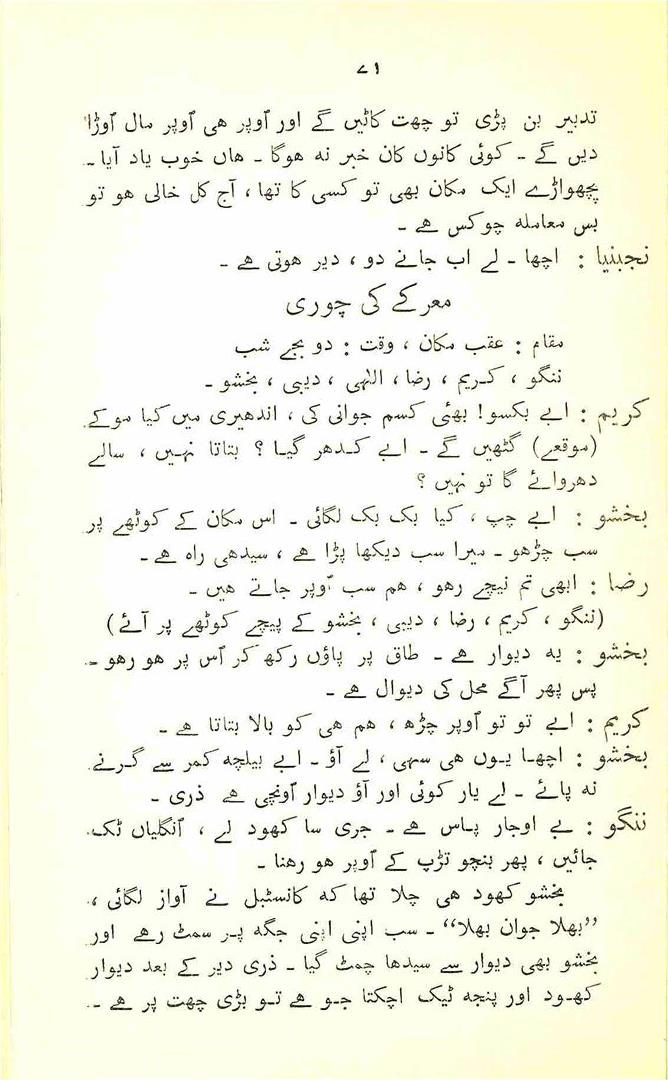 ۷۱
تدبیر بن پڑی تو چھت کاٹیں گے اور اُوپر ھی اُوپر مال اُوڑا
دیں گے ۔ کوئی کانوں کان خبر نہ ھوگا ۔ ھاں خوب یاد آیا ۔
پچھواڑے ایک مکان بھی تو کسی کا تھا ، آج کل خالی ھو تو
بس معاملہ چوکس ھے ۔
نجبنیا : اچھا ۔ لے اب جانے دو ، دیر ھوتی ھے ۔
معرکے کی چوری
مقام : عقب مکان ، وقت : دو بجے شب
ننگو ، کریم ، رضا ، اللہی ، دیبی ، بخشو ۔
کریم : ابے بکسو! بھئی کسم جوانی کی ، اندھیری میں کیا موکے
(موقعے) گٹھیں گے ۔ ابے کدھر گیا ؟ بتاتا نہیں ، سالے
دھروائے گا تو نہیں ؟
بخشو : ابے چپ ، کیا بک بک لگائی ۔ اس مکان کے کوٹھے پر
سب چڑھو ۔ میرا سب دیکھا پڑا ھے ، سیدھی راہ ھے ۔
رضا : ابھی تم نیچے رھو ، ھم سب اُوپر جاتے ھیں ۔
(ننگو ، کریم ، رضا ، دیبی ، بخشو کے پیچے کوٹھے پر آئے)
بخشو : یہ دیوار ھے ۔ طاق پر پاؤں رکھ کر اُس پر ھو رھو ۔
پس پھر آگے محل کی دیوال ھے ۔
کریم : ابے تو تو اُوپر چڑھ ، ھم ھی کو بالا بتاتا ھے ۔
بخشو : اچھا یوں ھی سہی ، لے آؤ ۔ ابے بیلچہ کمر سے گرنے
نہ پائے ۔ لے یار کوئی اور آؤ دیوار اُونچی ھے ذری ۔
ننگو : بے اوجار پاس ھے ۔ جری سا کھود لے ، اُنگلیاں ٹک
جائیں ، پھر بنچو تڑپ کے اُوپر ھو رھنا ۔
بخشو کھود ھی چلا تھا کہ کانسٹبل نے آواز لگائی ،
”بھلا جوان بھلا“ ۔ سب اپنی اپنی جگہ پر سمٹ رھے اور
بخشو بھی دیوار سے سیدھا چمٹ گیا ۔ ذری دیر کے بعد دیوار
کھود اور پنجہ ٹیک اچکتا جو ھے تو بڑی چھت پر ھے ۔